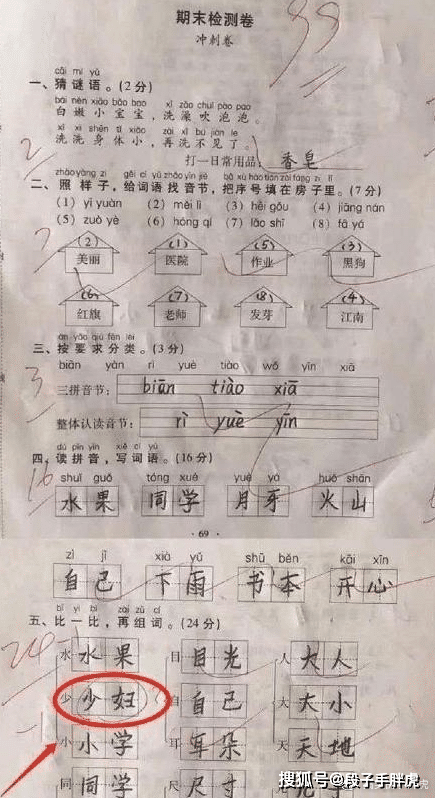 期末检测卷
冲刺卷
99
cāi mí yǔ
一、猜谜语。(2分)
bái nèn xiǎo bǎo bao xǐ zǎo chuī pào pao
白嫩小宝宝，洗澡吹泡泡。
xǐ xǐ shēn tǐ xiǎo zài xǐ bú jiàn le
洗洗身体小，再洗不见了。
打一日常用品：香皂
2
二、照样子，给词语找音节，把序号填在房子里。(7分)
(1) yī yuàn (2) měi lì (3) hēi gǒu (4) jiāng nán
(5) zuò yè (6) hóng qí (7) lǎo shī (8) fā yá
(2) (1) (5) (3)
美丽 医院 作业 黑狗
7
(6) (7) (8) (4)
红旗 老师 发芽 江南
àn yāo qiú fēn lèi
三、按要求分类。(3分)
biān yàn rì yuè tiào wǒ yīn xiā
三拼音节： biān tiào xiā
3
整体认读音节： rì yuè yīn
dú pīn yīn xiě cí yǔ
四、读拼音，写词语。(16分)
16
shuǐ guǒ tóng xué yuè yá huǒ shān
水果 同学 月牙 火山
· 69 ·
zì jǐ xià yǔ shū běn kāi xīn
自己 下雨 书本 开心
bǐ yì bǐ zài zǔ cí
五、比一比，再组词。(24分)
水 水果 目 目光 人 大人
少 少妇 自 自己 大 大小
-1
小 小学 耳 耳朵 天 天地
同 同学 尺 尺寸
搜狐号@段子手胖虎